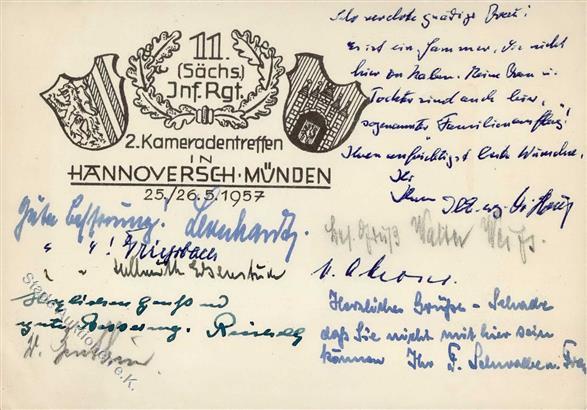 11.
(Sächs.)
Inf. Rgt.
2. Kameradentreffen
IN
HANNOVERSCH. MÜNDEN
25./26.5.1957
Sehr verehrte gnädige Frau!
Es ist ein Jammer, Sie nicht
hier zu haben. Meine Frau u.
Tochter sind auch hier,
sogenannter „Familienausflug!“
Ihnen aufrichtigst beste Wünsche.
Ihr
Gute Besserung! Leonhardt.
" " !
" " Hellmuth
Herzlichen Gruß und
gute Besserung.
Walter Weiß.
Herzliche Grüße - Schade
daß Sie nicht mit hier sein
können Ihr F. Schwalbe u. Frau